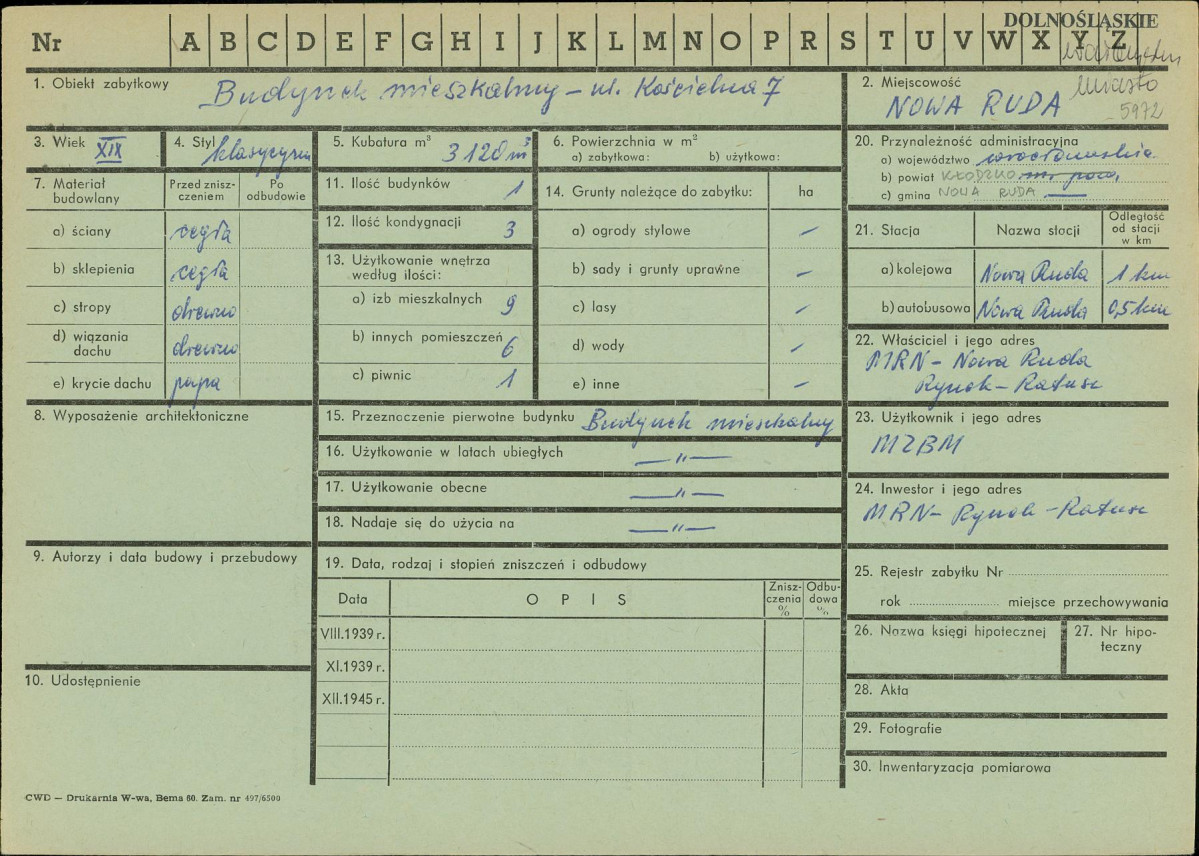 DOLNOŚLĄSKIE
Nr A B C D E F G H I J K L M N O P R S T U V W X Y Z
1. Obiekt zabytkowy Budynek mieszkalny – ul. Kościelna 7
2. Miejscowość miasto
NOWA RUDA 5972
3. Wiek XIX
4. Styl klasycyzm
5. Kubatura m³ 3120 m³
6. Powierzchnia w m²
a) zabytkowa: b) użytkowa:
7. Materiał budowlany
Przed znisz-
czeniem
Po
odbudowie
a) ściany cegła
b) sklepienia cegła
c) stropy drewno
d) wiązania
dachu drewno
e) krycie dachu papa
8. Wyposażenie architektoniczne
9. Autorzy i data budowy i przebudowy
10. Udostępnienie
11. Ilość budynków 1
12. Ilość kondygnacji 3
13. Użytkowanie wnętrza
według ilości:
a) izb mieszkalnych 9
b) innych pomieszczeń 6
c) piwnic 1
14. Grunty należące do zabytku: ha
a) ogrody stylowe –
b) sady i grunty uprawne –
c) lasy –
d) wody –
e) inne –
15. Przeznaczenie pierwotne budynku Budynek mieszkalny
16. Użytkowanie w latach ubiegłych —"—
17. Użytkowanie obecne —"—
18. Nadaje się do użycia na —"—
19. Data, rodzaj i stopień zniszczeń i odbudowy
Data OPIS
Znisz-
czenia
%
Odbu-
dowa
%
VIII.1939 r.
XI.1939 r.
XII.1945 r.
20. Przynależność administracyjna
a) województwo wrocławskie
b) powiat KŁODZKO
c) gmina NOWA RUDA —
21. Stacja Nazwa stacji
Odległość
od stacji
w km
a) kolejowa Nowa Ruda 1 km
b) autobusowa Nowa Ruda 0,5 km
22. Właściciel i jego adres
MRN – Nowa Ruda
Rynek – Ratusz
23. Użytkownik i jego adres
MZBM
24. Inwestor i jego adres
MRN – Rynek – Ratusz
25. Rejestr zabytku Nr
rok miejsce przechowywania
26. Nazwa księgi hipotecznej
27. Nr hipo-
teczny
28. Akta
29. Fotografie
30. Inwentaryzacja pomiarowa
CWD – Drukarnia W-wa, Bema 60. Zam. nr 497/6500